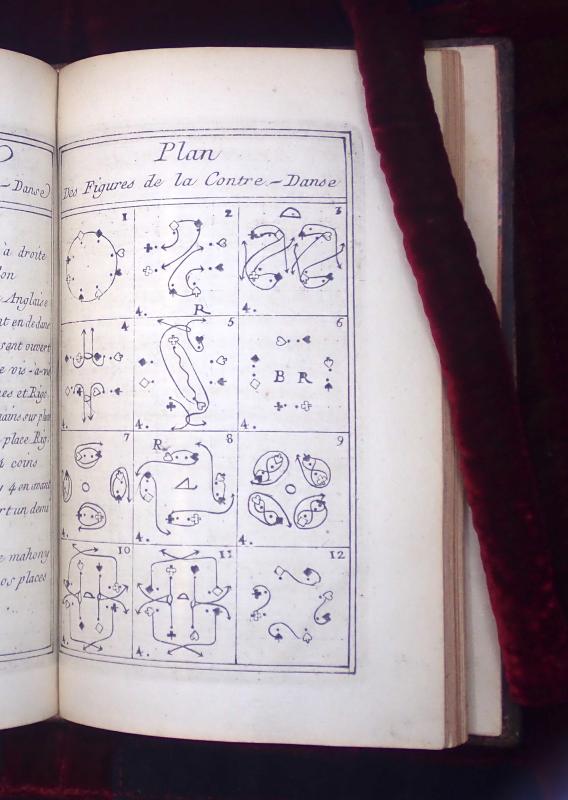 - Danse
à droite
Anglaise
nt en dedans
sent ouvert
e vis-à-vis
nes et Rigo
mains sur place
place Rig.
4 coins
y 4 en avant
rt un demi
e mahony
os places
Plan
Des Figures de la Contre - Danse
1 2 3
4. R 4.
4 5 6
B R
4. 4.
7 8 9
R
4. 4. 4.
10 11 12
4. 4.